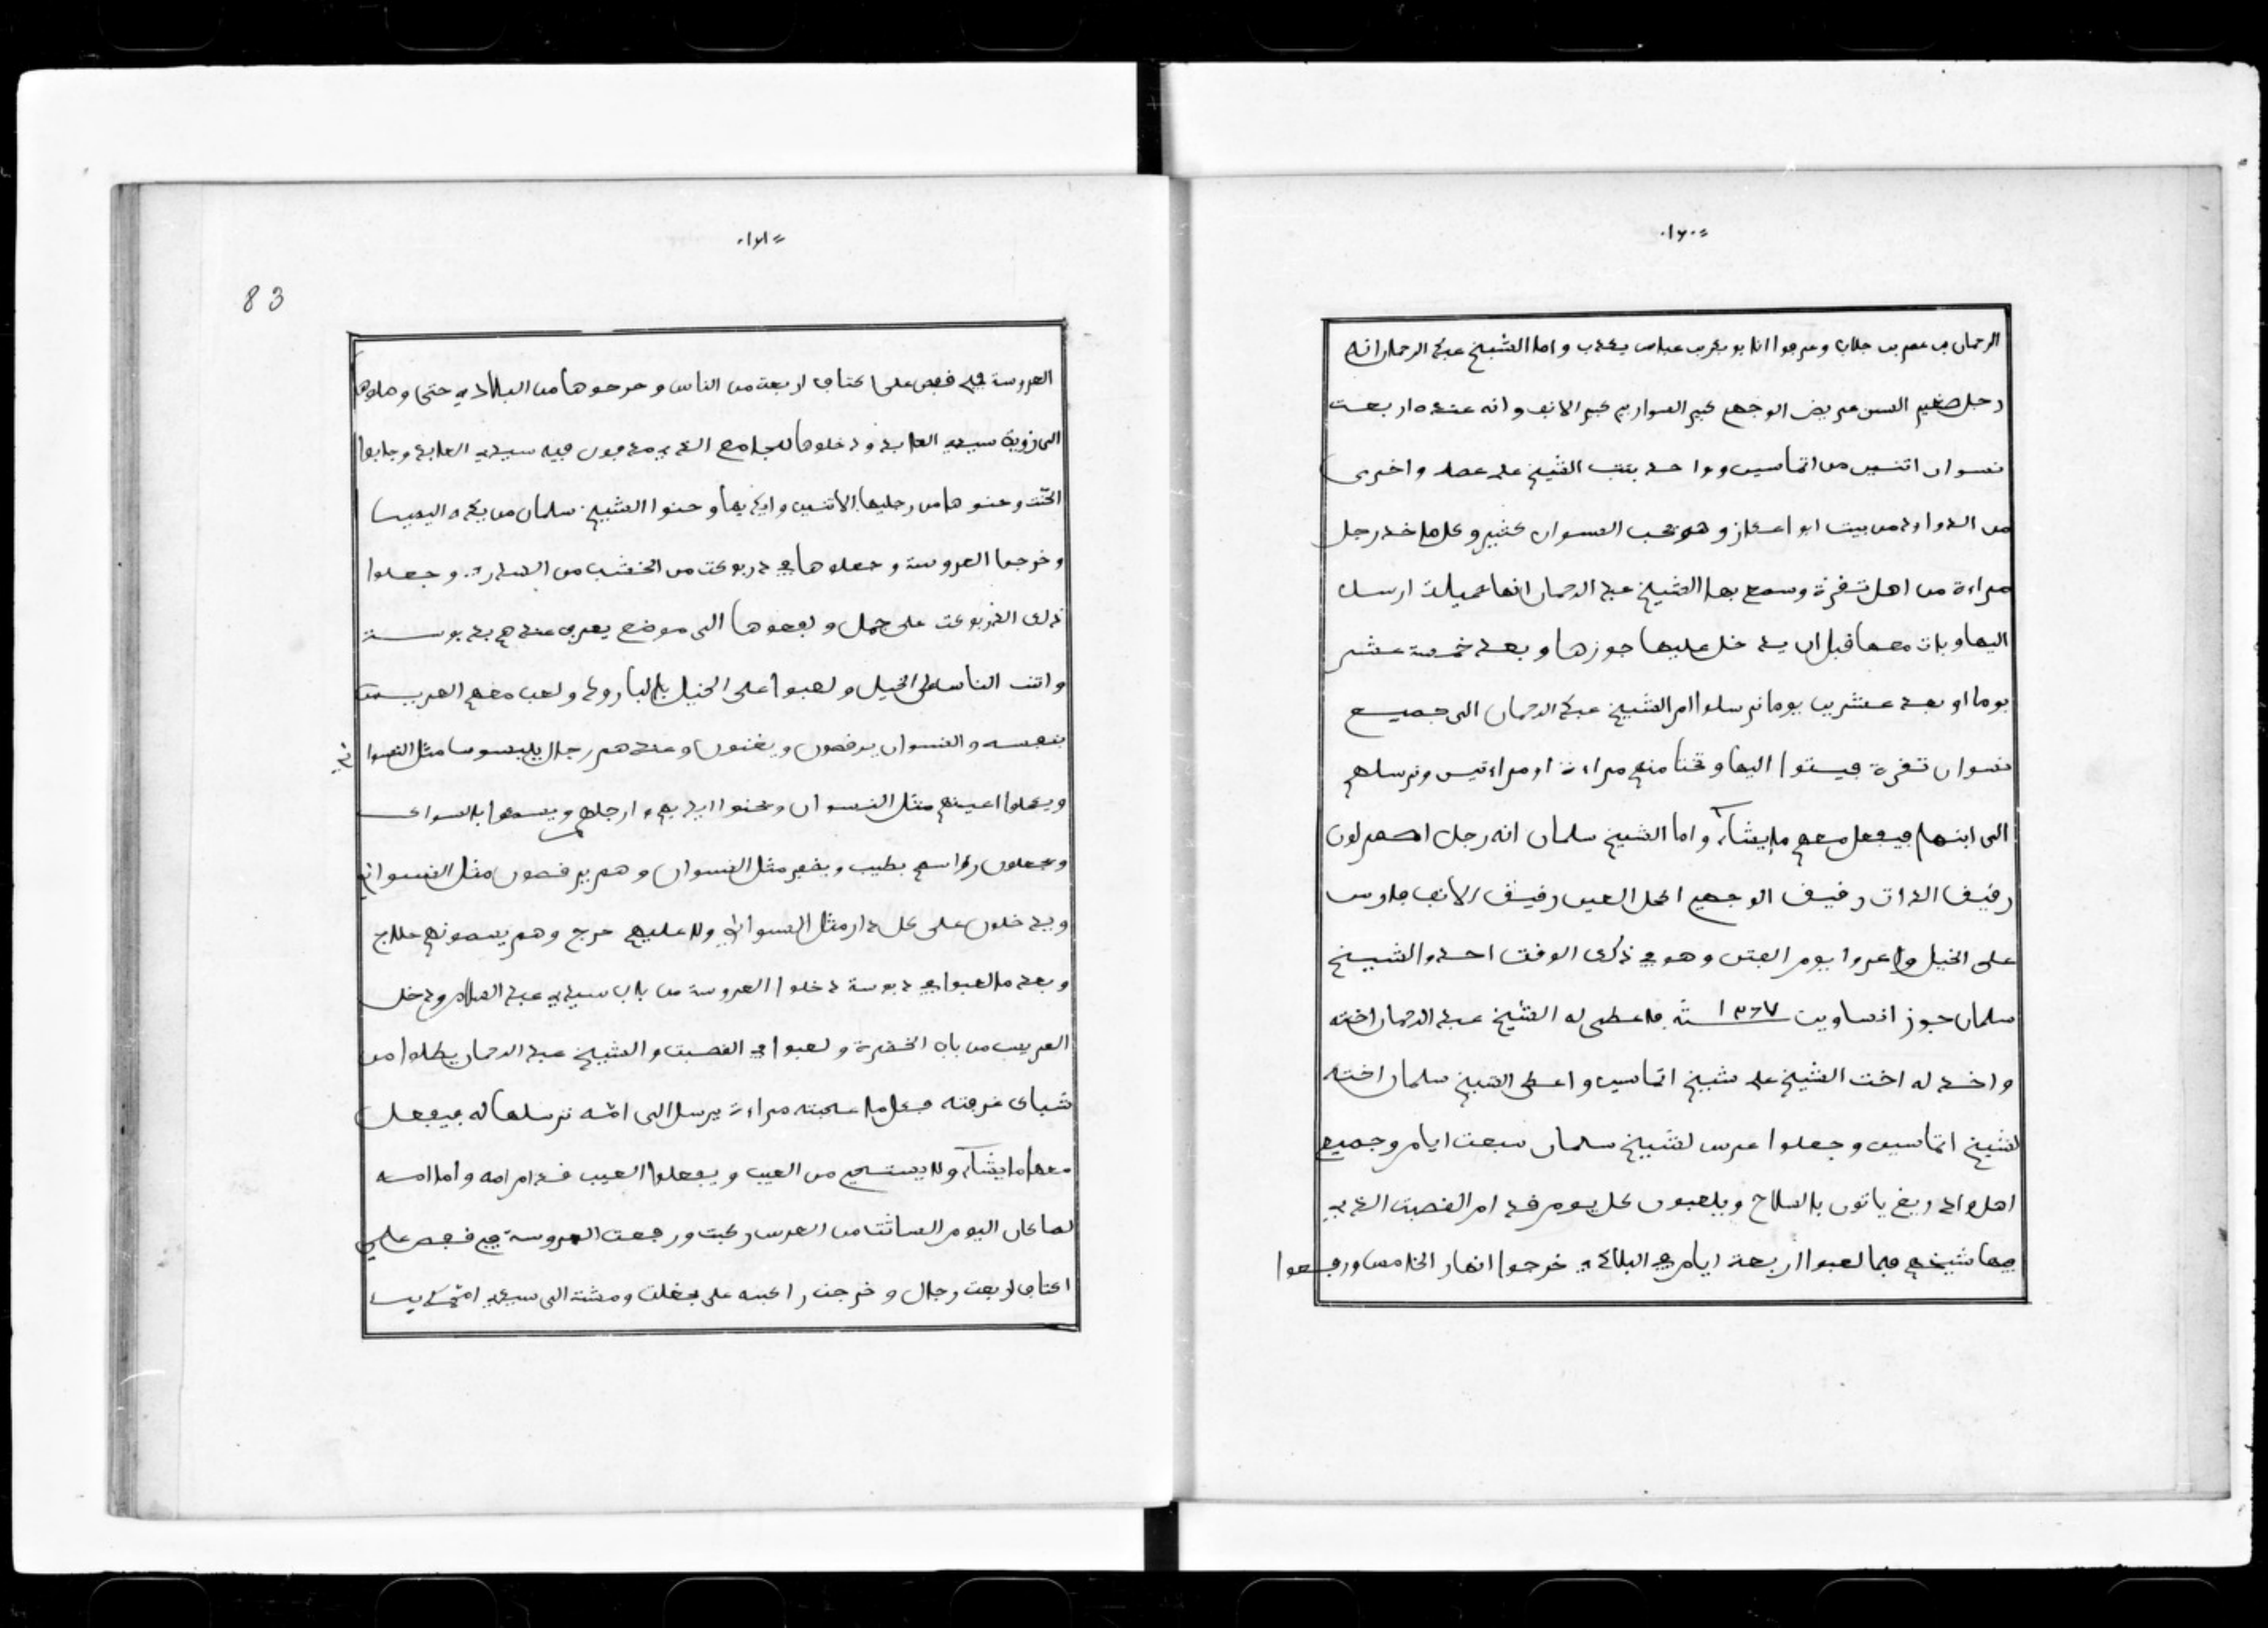 ١٦٠
الرحمان بن عمر بن جلاب وعرجوا اتا بوبكر بن عباس يعذب واما الشيخ عبد الرحمان انه
رجل صغير السن عريض الوجه كبير الشوارب كبير الانف وانه عنده اربعت
نسوان اتنين من اتماسين وواحد بنت الشيخ على عصا واخرى
من الدواود من بيت ابو اعكاز وهو يحب النسوان كثير وكل ما خد رجل
مراءة من اهل تفرة وسمع بها الشيخ عبد الرحمان انها جميلت ارسل
اليها وبات معها قبل ان يدخل عليها جوزها وبعد خمسة عشر
يوما او بعد عشرين يوما ترسلوا ام الشيخ عبد الرحمان الى جميع
نسوان تفرة فيتوا اليها وتختا منهم مراءة او مراءتيس وترسلهم
الى ابنها فيفعل معهم ما يشاء واما الشيخ سلمان انه رجل اصفر لون
رقيق الذات رقيق الوجه اكحل العين رقيق الانف فارس
على الخيل واعروا يوم الفتن وهو في ذلك الوقت احد والشيخ
سلمان جوز انساويت ١٢٦٧ سنة فاعطى له الشيخ عبد الرحمان اخته
واخد له اخت الشيخ على شيخ اتماسين واعطى الشيخ سلمان اخته
لشيخ اتماسين وجعلوا عرس لشيخ سلمان سبعت ايام وجميع
اهل واد ريغ ياتون بالسلاح ويلعبون كل يوم قدام القصبت الذي
فيها شيخهم فيما لعبوا اربعة ايام في البلاد خرجوا انهار الخامس ورفعوا
١٦١
83
العروسة في قفص على اكتاف اربعة من الناس وخرجوها من البلاد حتى وصلوها
الى زوية سيدي العابد ودخلوها للجامع الذي مدفون فيه سيدي العابد وجابوا
الحنت وحنوها من رجليها الاتنين وايديها وحنوا الشيخ سلمان من يده اليمين
وخرجوا العروسة وجعلوها في دربوكت من الخشب من الدار وجعلوا
ذلك الدربوكت على جمل ورفعوها الى موضع يعرف عندهم بد بوسة
واتت الناس على الخيل ولعبوا على الخيل بالبارود ولعب معهم العريس
بنفسه والنسوان يرقصون ويغنون وعندهم رجال يلبسوا مثل النسوا ن
ويكحلوا اعينهم مثل النسوان ويحنوا ايديهم وارجلهم ويسمعوا بالسواك
ويجعلون رواسهم بطيب ويضفر مثل النسوان وهم يرقصون مثل النسوان
ويدخلون على كل دار مثل النسوان ولا عليهم حرج وهم يسمونهم
وبعد ما لعبوا في دبوسة دخلوا العروسة من باب سيدي عبد السلام ودخل
العريس من باب الخضرة ولعبوا في القصبت والشيخ عبد الرحمان يطلوا من
شباك غرفته فكل ما عجبته مراءة يرسل الى امه ترسلها له فيفعل
معها ما يشاء ولا يستحي من العيب ويفعلوا العيب قدام امه واما امه
لما كان اليوم السادت من العرس ركبت ورجعت العروسة في قفص على
اكتاف اربعت رجال وخرجت راكبه على بغلت ومشت الى سيدي